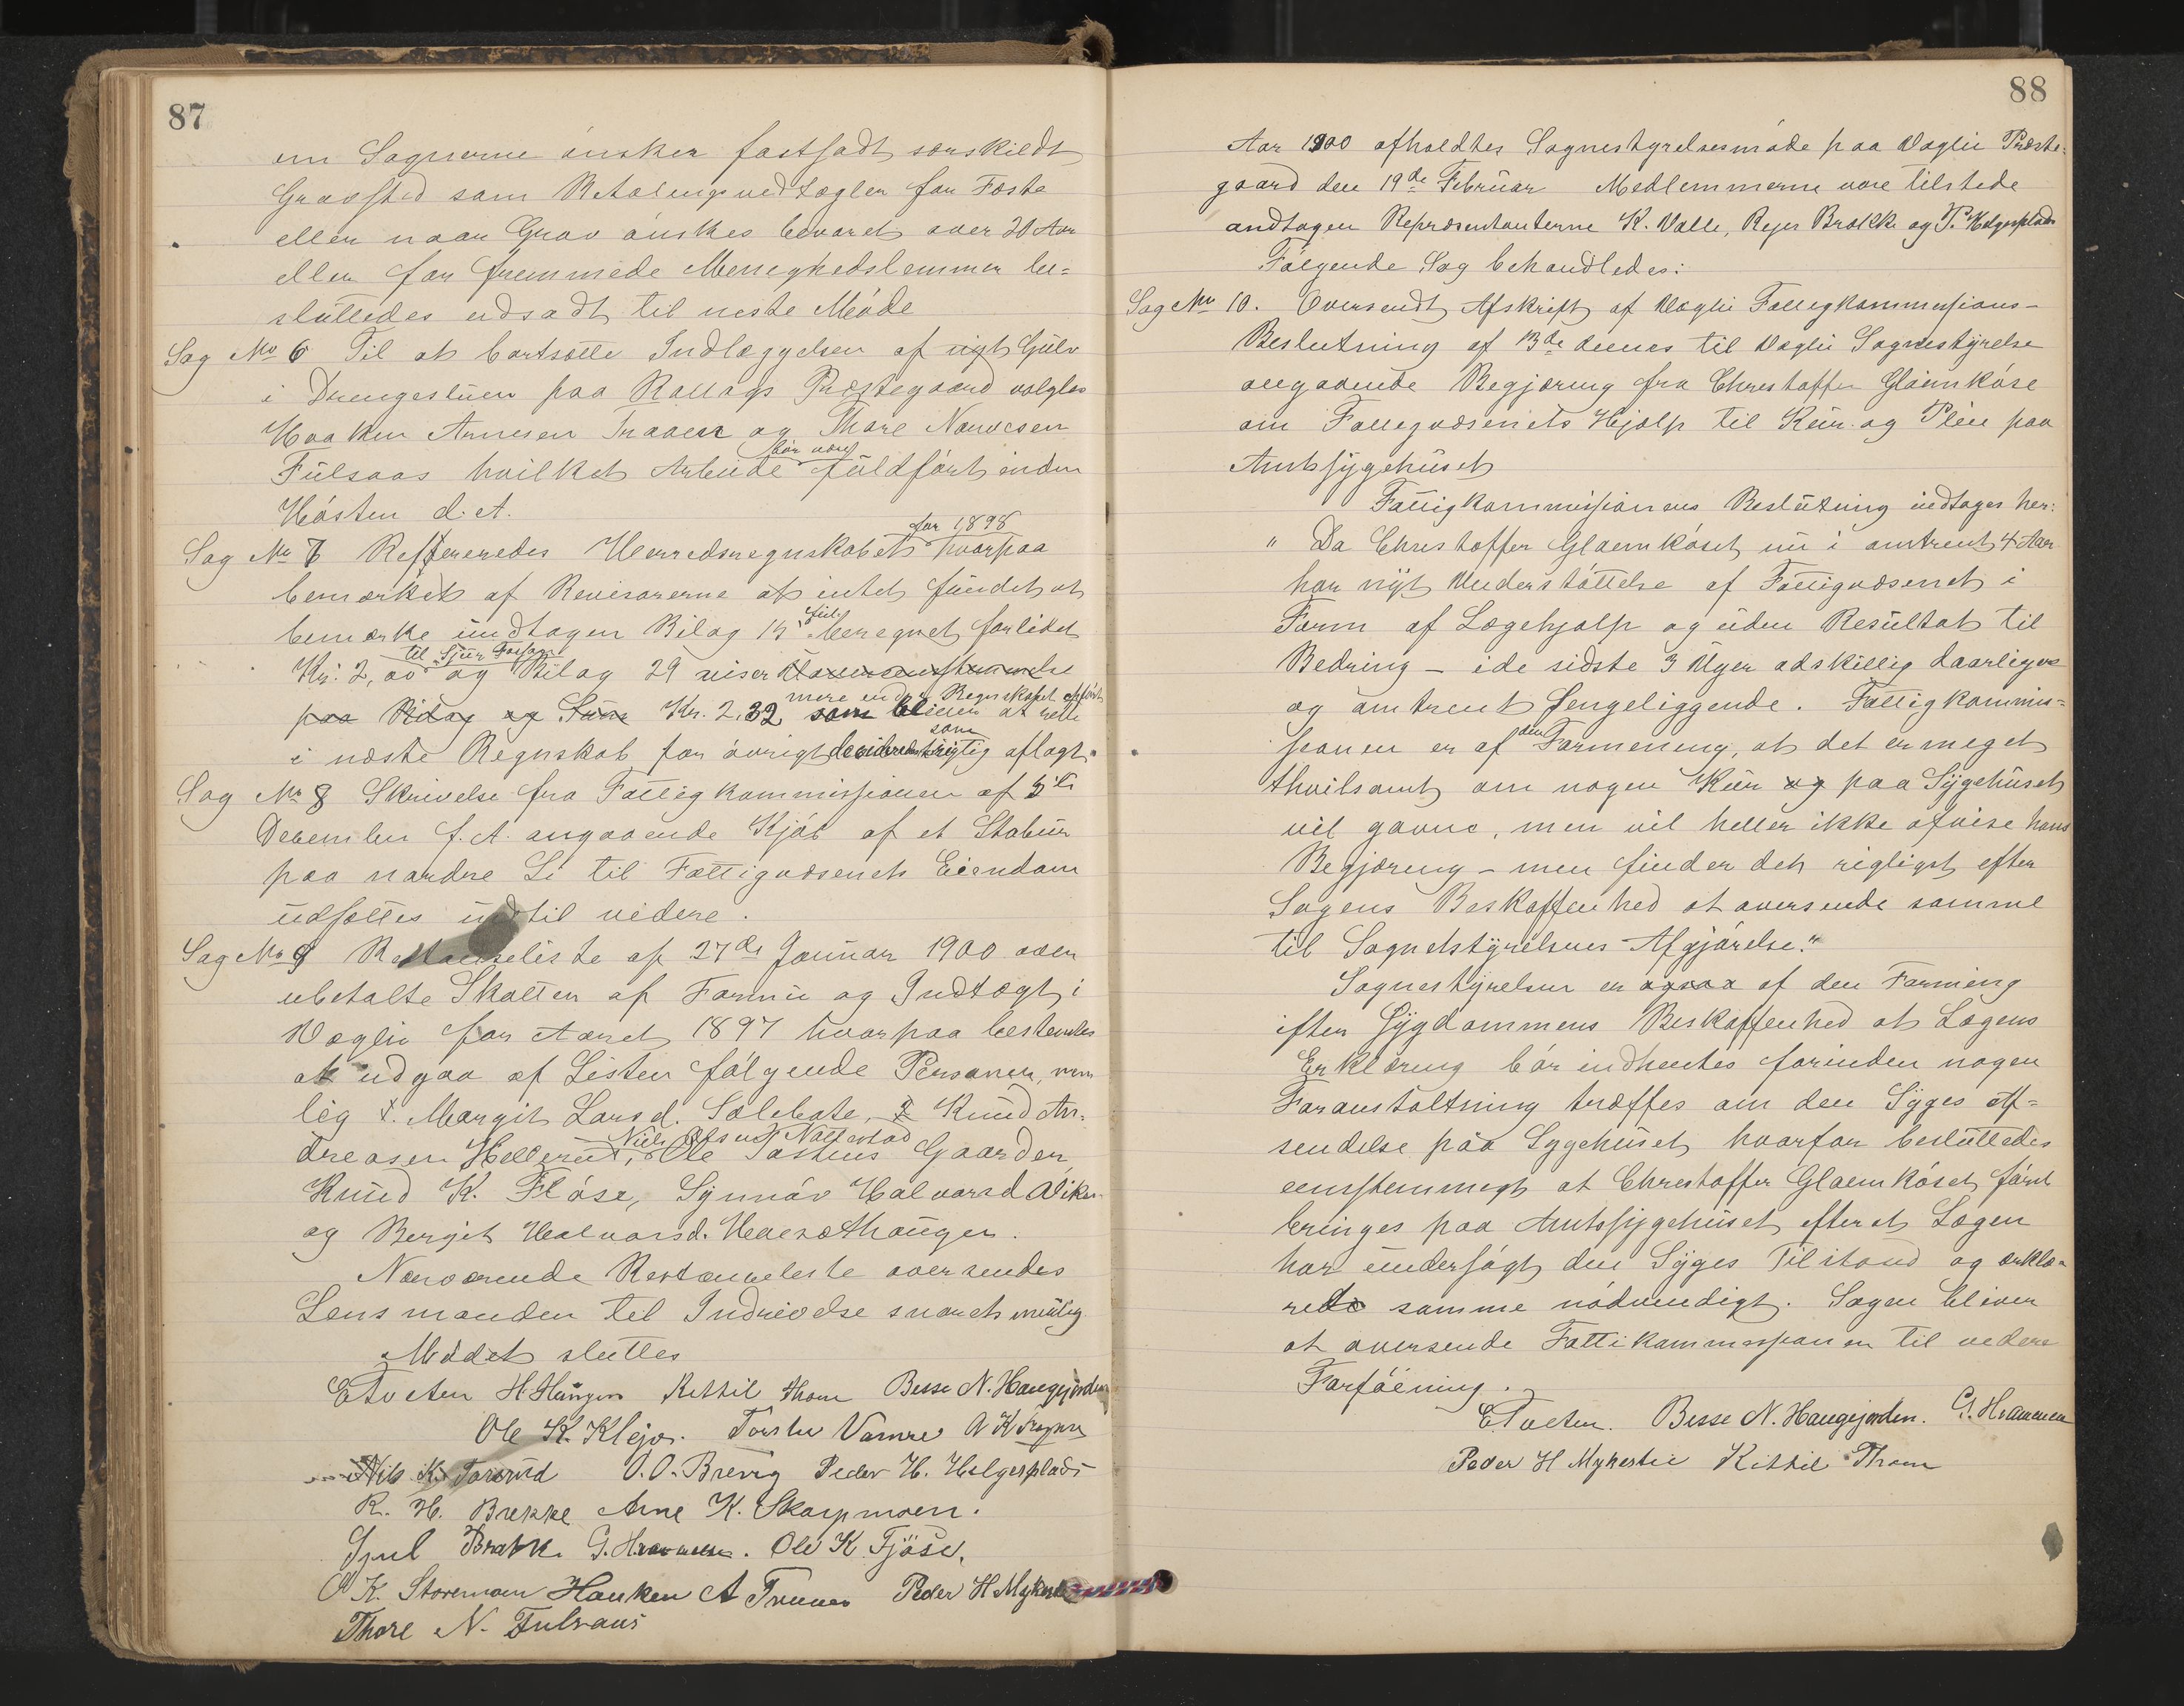 87
om Sognerne ønsker fastsadt særskildt
Gravsted som Betalingsvedtægter for Fæste
eller naar Grav ønskes bevaret over 20 Aar
eller for fremmede Menighedslemmer be-
sluttedes udsadt til neste Møde
Sag No 6 Til at bortsætte Indlæggelsen af nyt Gulv
i Drengestuen paa Rollags Præstegaard valgtes
Haaken Arnesen Traaen og Thore
Fulsaas hvilket Arbeide bør være fuldført inden
Høsten d. A.
Sag No 7 Reffereredes Herredsregnskabet for 1898 hvorpaa
bemærket af Revisorerne at intet fundet at
bemærke undtagen Bilag 15 beregnet forlidet
Kr: 2,00 og Bilag 29 viser
paa Bidag og Kr. 2,32 mere end Regnskabet opført som bliver at rette
i næste Regnskab for øvrigt som rigtig aflagt.
Sag No 8 Skrivelse fra Fattigkommissionen af 5te
December f. A. angaaende Kjøb af et Stabur
paa nordre Li til Fattigvæsenets Eiendom
udsættes indtil videre.
Sag No 9 Restanseliste af 27de Januar 1900 over
ubetalte Skatter af Formue og Indtægt i
Vægli for Aaret 1897 hvorpaa bestemtes
at udgaa af Listen følgende Personer, nem
lig 1. Margit Larsd. Sølebøte, 2 Knud An-
dreasen Hellerud, Niels Olsen Nattestad Ole Tostens Gaarden
Knud K. Fløse, Synnøv Halvorsd
og Bergit Halvorsd.
Nærværende Restanceliste oversendes
Lensmanden til Indrivelse snarest mulig
Mødet sluttes
E Tveten H. Haugen Kittil Thom Besse N. Haugejorden
Ole K. Klejo. Torsten Vamre
Nils K. Tarerud O. O. Brevig Peder H. Helgesplads
R. H. Brekke Arne K. Skarpmoen.
G. Hrammen. Ole K Fjøse.
O K. Storemoen Haaken A Traaen Peder H Mykstu
Thore N. Fulsaas
88
Aar 1900 afholdtes Sognestyrelsesmøde paa Væglii Præste-
gaard den 19de Februar Medlemmerne vare tilstede
undtagen Repræsentanterne K. Valle, Rejer Brække og P. Helgesplads
Følgende Sag behandledes:
Sag No 10. Oversendt Afskrift af Væglii Fattigkommissions-
Beslutning af 13de dennes til Væglii Sognestyrelse
angaaende Begjæring fra Christoffer Gladmkøse
om Fattigvæsenets Hjælp til Kur og Pleie paa
Amtssygehuset
Fattigkommissionens Beslutning indtages her:
" Da Christoffer nu i omtrent 4 Aar
har nyt Understøttelse af Fattigvæsenet i
Form af Lægehjælp og uden Resultat til
Bedring – i de sidste 3 Uger adskillig daarligere
og omtrent sengeliggende. Fattigkommis-
sionen er af den Formening, at det er meget
thvilsomt om nogen Kur og paa Sygehuset
vil gavne, men vil heller ikke afvise hans
Begjæring – men finder det rigtigst efter
Sagens Beskaffenhed at oversende samme
til Sognestyrelsens Afgjørelse."
Sognestyrelsen er ogsaa af den Forming
efter Sygdommens Beskaffenhed at Lægens
Erklæring bør indhentes forinden nogen
Foranstaltning træffes om den Syges Af-
sendelse paa Sygehuset hvorfor besluttedes
eenstemmigt at Christoffer først
bringes paa Amtssygehuset efterat Lægen
har undersøgt den Syges Tilstand og erklæ-
rede samme nødvendigt. Sagen bliver
at oversende Fattikommissionen til videre
Forføining.
E. Tveten. Besse N. Haugejorden. G. Hrammen
Peder H Mykestu Kittil Thom